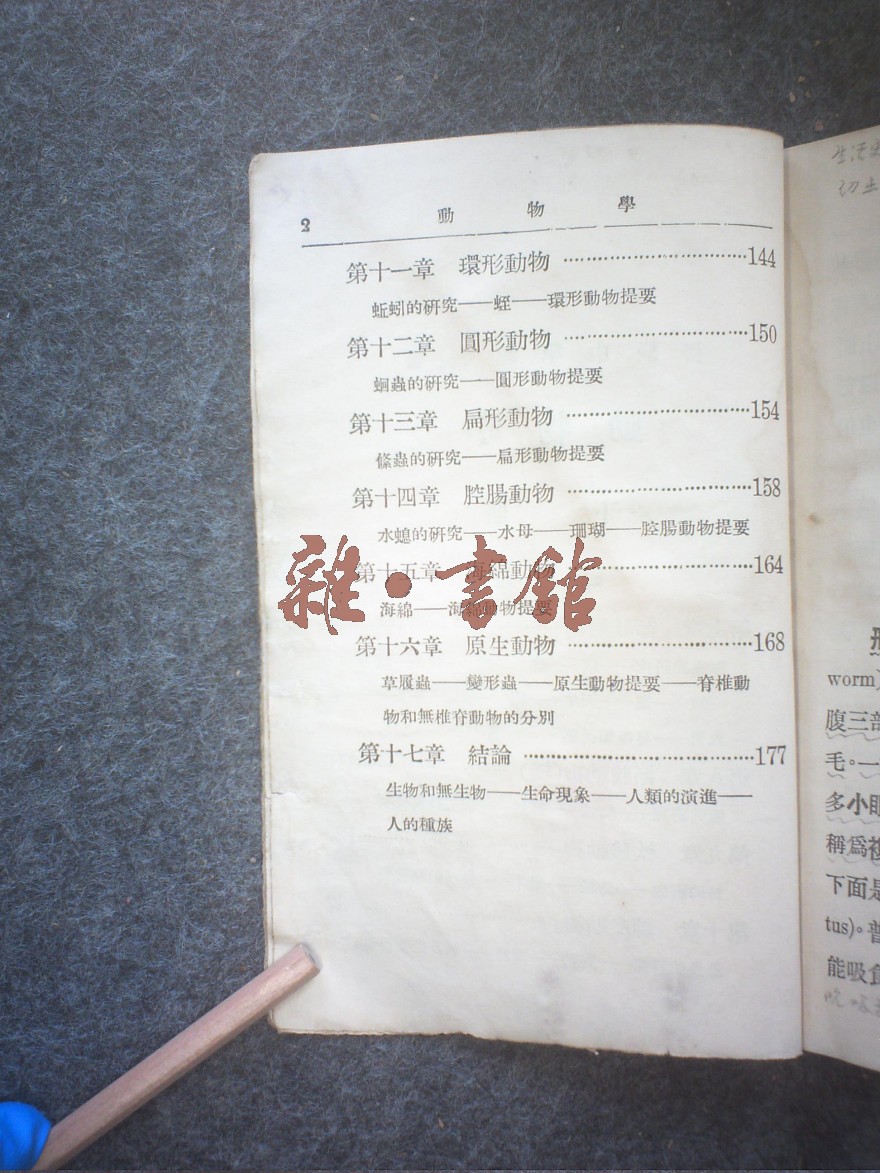 2 動物學
第十一章 環形動物 ……………………………144
蚯蚓的研究——蛭——環形動物提要
第十二章 圓形動物 ……………………………150
蛔蟲的研究——圓形動物提要
第十三章 扁形動物 ……………………………154
絛蟲的研究——扁形動物提要
第十四章 腔腸動物 ……………………………158
水螅的研究——水母——珊瑚——腔腸動物提要
第十五章 海綿動物 ……………………………164
海綿——海綿動物提要
第十六章 原生動物 ……………………………168
草履蟲——變形蟲——原生動物提要——脊椎動
物和無椎脊動物的分別
第十七章 結論 ……………………………………177
生物和無生物——生命現象——人類的演進——
人的種族
雜·書館
worm)
腹三部
毛。一
多小眼
稱爲複
下面是
tus)。普
能吸食